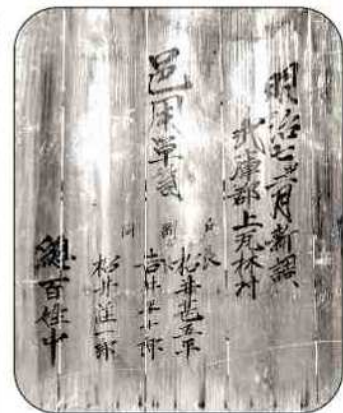 明治七年二月新調
武庫郡上瓦林村
邑用箪笥
戸長
松井甚五平
副
吉井
同
松井
郎
總百姓中